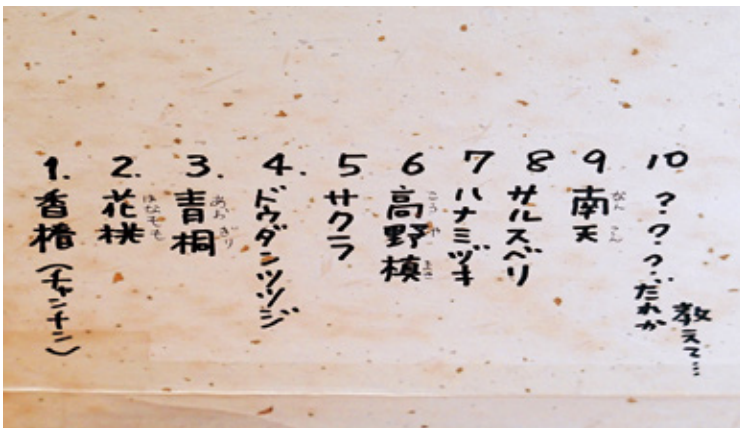 1. 香椿(チャンチン)
2. 花桃 はなもも
3. 青桐 あおぎり
4. ドウダンツツジ
5 サクラ
6 高野槙 こうやまき
7 ハナミヅキ
8 サルスベリ
9 南天 なんてん
10 ???‥だれか
教えて…